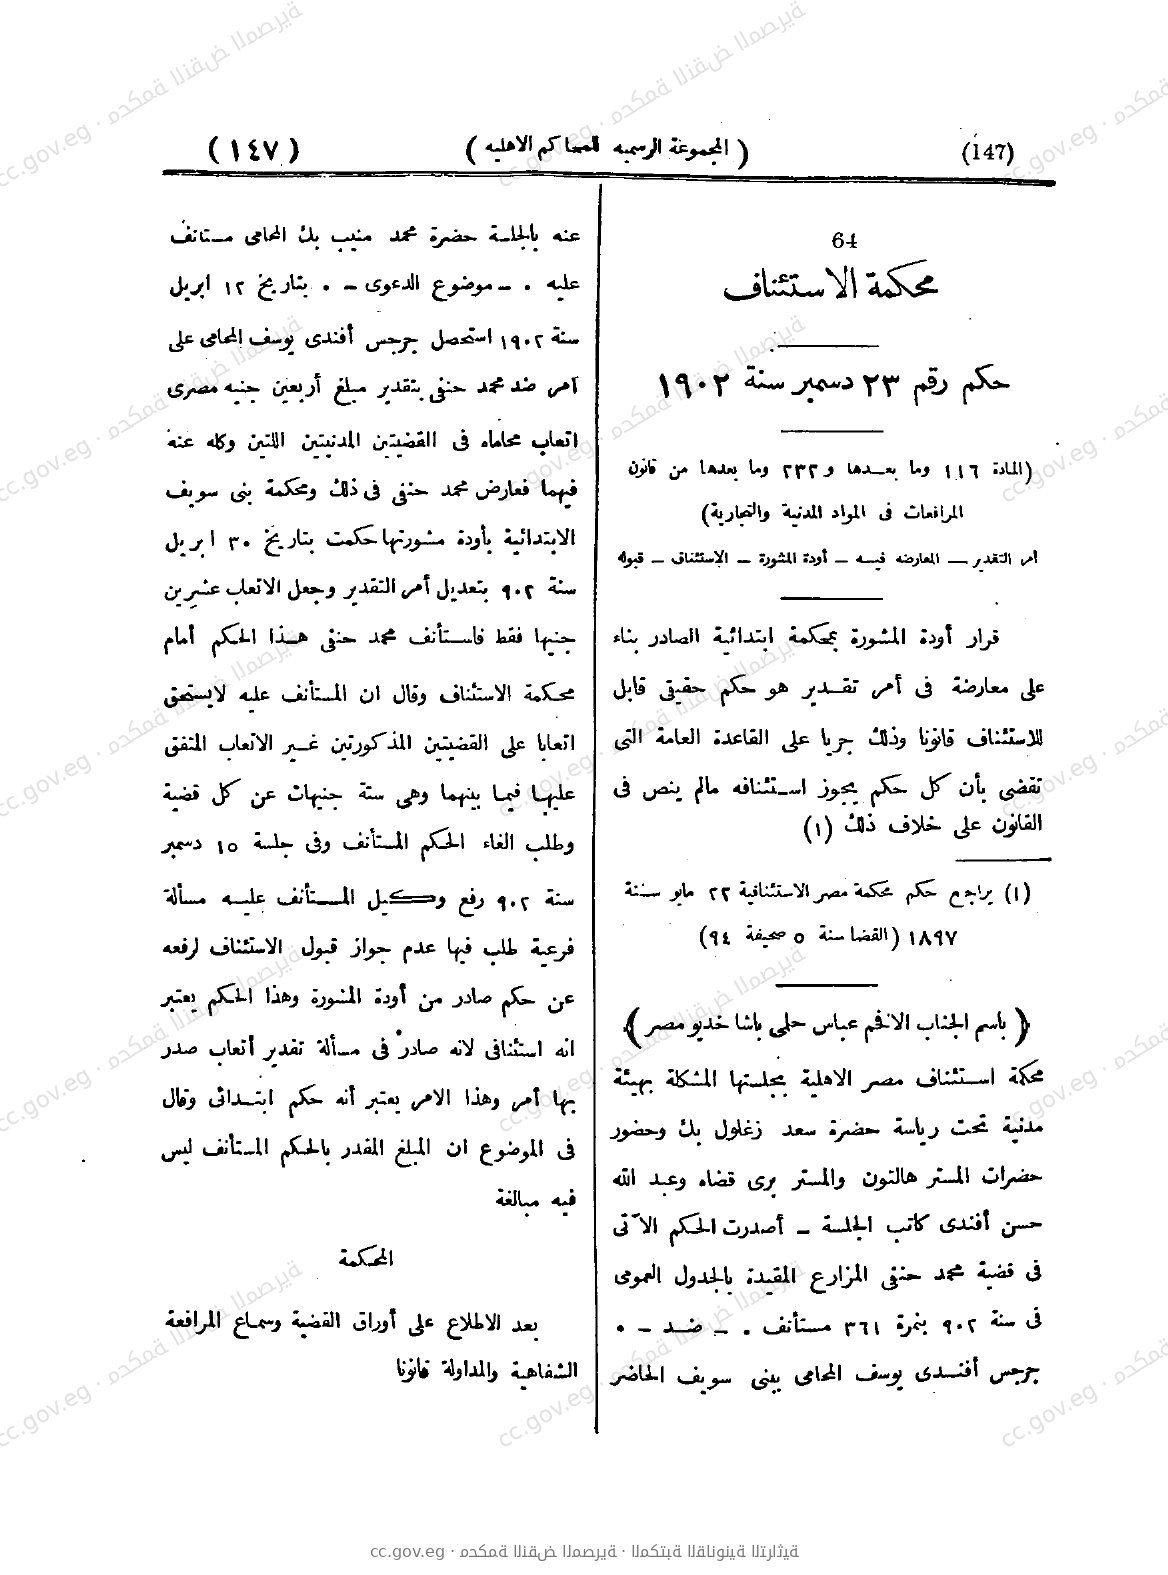 (147) (المجموعة الرسميه للمحاكم الاهليه) (١٤٧)
64
محكمة الاستئناف
حكم رقم ٢٣ دسمبر سنة ١٩٠٢
(المادة ١١٦ وما بعدها و ٢٣٢ وما بعدها من قانون
المرافعات فى المواد المدنية والتجارية)
أمر التقدير — المعارضه فيه — أودة المشورة — الاستئناف — قبوله
قرار أودة المشورة بمحكمة ابتدائية الصادر بناء
على معارضة فى أمر تقدير هو حكم حقيقى قابل
للاستئناف قانونا وذلك جريا على القاعدة العامة التى
تقضى بأن كل حكم يجوز استئنافه مالم ينص فى
القانون على خلاف ذلك (١)
(١) يراجع حكم محكمة مصر الاستئنافية ٢٢ مايو سنة
١٨٩٧ (القضا سنة ٥ صحيفة ٩٤)
(باسم الجناب الافخم عباس حلمى باشا خديو مصر)
محكمة استئناف مصر الاهلية بجلستها المشكلة بهيئة
مدنية تحت رياسة حضرة سعد زغلول بك وحضور
حضرات المستر هالتون والمستر برى قضاه وعبد الله
حسن أفندى كاتب الجلسة – أصدرت الحكم الآتى
فى قضية محمد حنفى المزارع المقيدة بالجدول العمومى
فى سنة ٩٠٢ بنمرة ٣٦١ مستأنف . – ضد – .
جرجس أفندى يوسف المحامى ببنى سويف الحاضر
عنه بالجلسة حضرة محمد منيب بك المحامى مستانف
عليه . – موضوع الدعوى – . بتاريخ ١٢ ابريل
سنة ١٩٠٢ استحصل جرجس أفندى يوسف المحامى على
أمر ضد محمد حنفى بتقدير مبلغ أربعين جنيه مصرى
اتعاب محاماه فى القضيتين المدنيتين اللتين وكله عنه
فيهما فعارض محمد حنفى فى ذلك ومحكمة بنى سويف
الابتدائية بأودة مشورتها حكمت بتاريخ ٣٠ ابريل
سنة ٩٠٢ بتعديل أمر التقدير وجعل الاتعاب عشرين
جنيها فقط فاستأنف محمد حنفى هذا الحكم أمام
محكمة الاستئناف وقال ان المستأنف عليه لايستحق
اتعابا على القضيتين المذكورتين غير الاتعاب المتفق
عليها فيما بينهما وهى ستة جنيهات عن كل قضية
وطلب الغاء الحكم المستأنف وفى جلسة ١٥ دسمبر
سنة ٩٠٢ رفع وكيل المستأنف عليه مسألة
فرعية طلب فيها عدم جواز قبول الاستئناف لرفعه
عن حكم صادر من أودة المشورة وهذا الحكم يعتبر
انه استئنافى لانه صادر فى مسألة تقدير أتعاب صدر
بها أمر وهذا الامر يعتبر أنه حكم ابتدائى وقال
فى الموضوع ان المبلغ المقدر بالحكم المستأنف ليس
فيه مبالغة
المحكمة
بعد الاطلاع على أوراق القضية وسماع المرافعة
الشفاهية والمداولة قانونا
cc.gov.eg · محكمة النقض المصرية · المكتبة القانونية التراثية